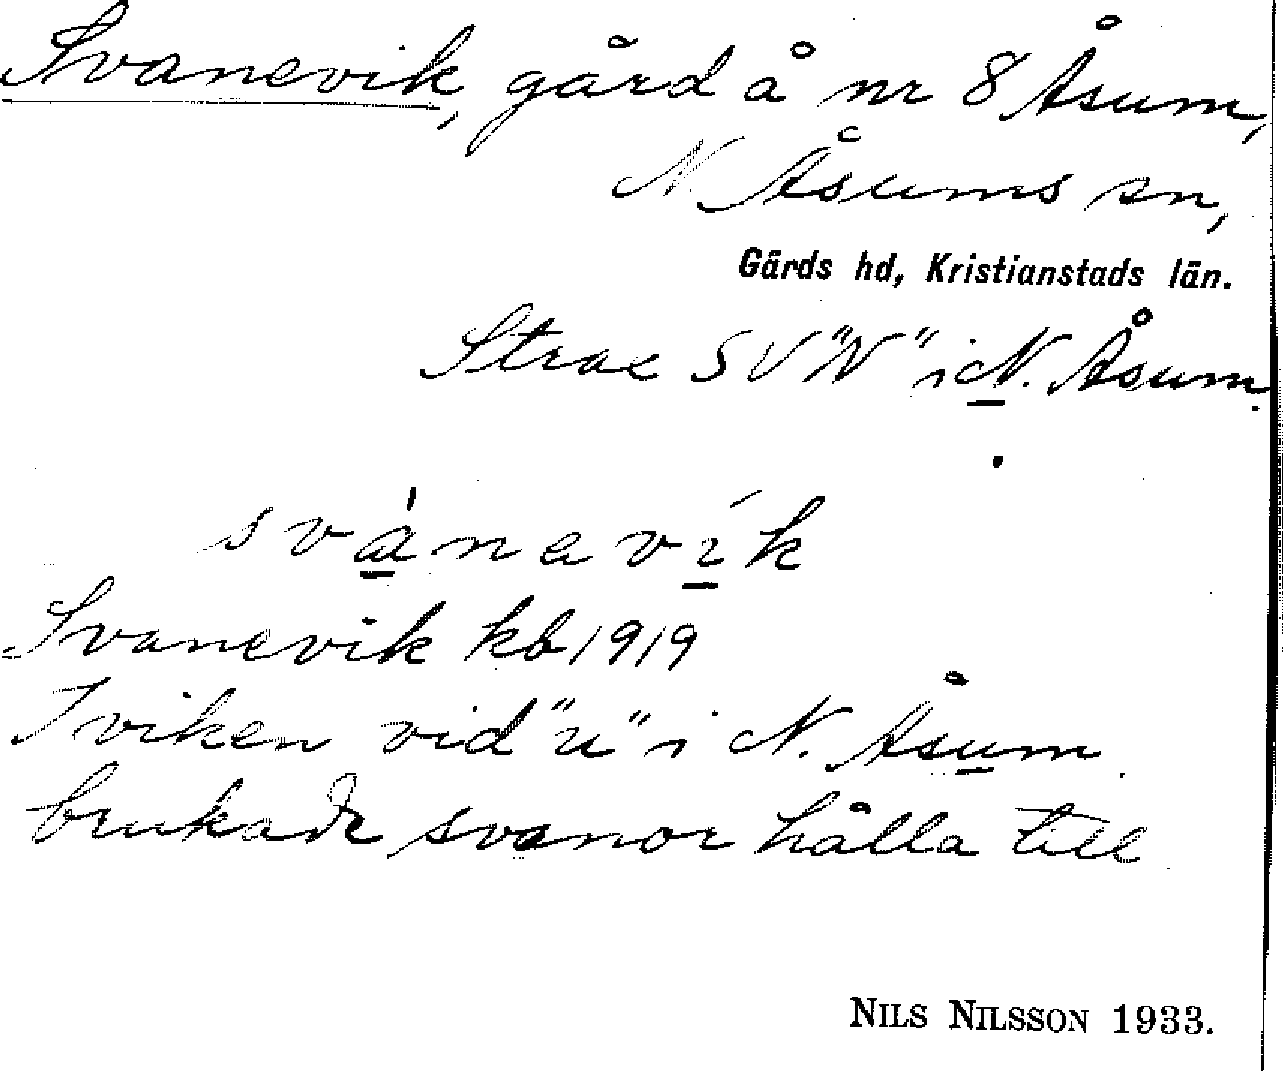 Svanevik, gård å nr 8 Åsum,
N Åsums sn,
Gärds hd, Kristianstads län.
Strax SV "N" i N. Åsum.
svànavík
Svanevik kb 1919
I viken vid "u" i N. Åsum
brukade svanor hålla till
NILS NILSSON 1933.